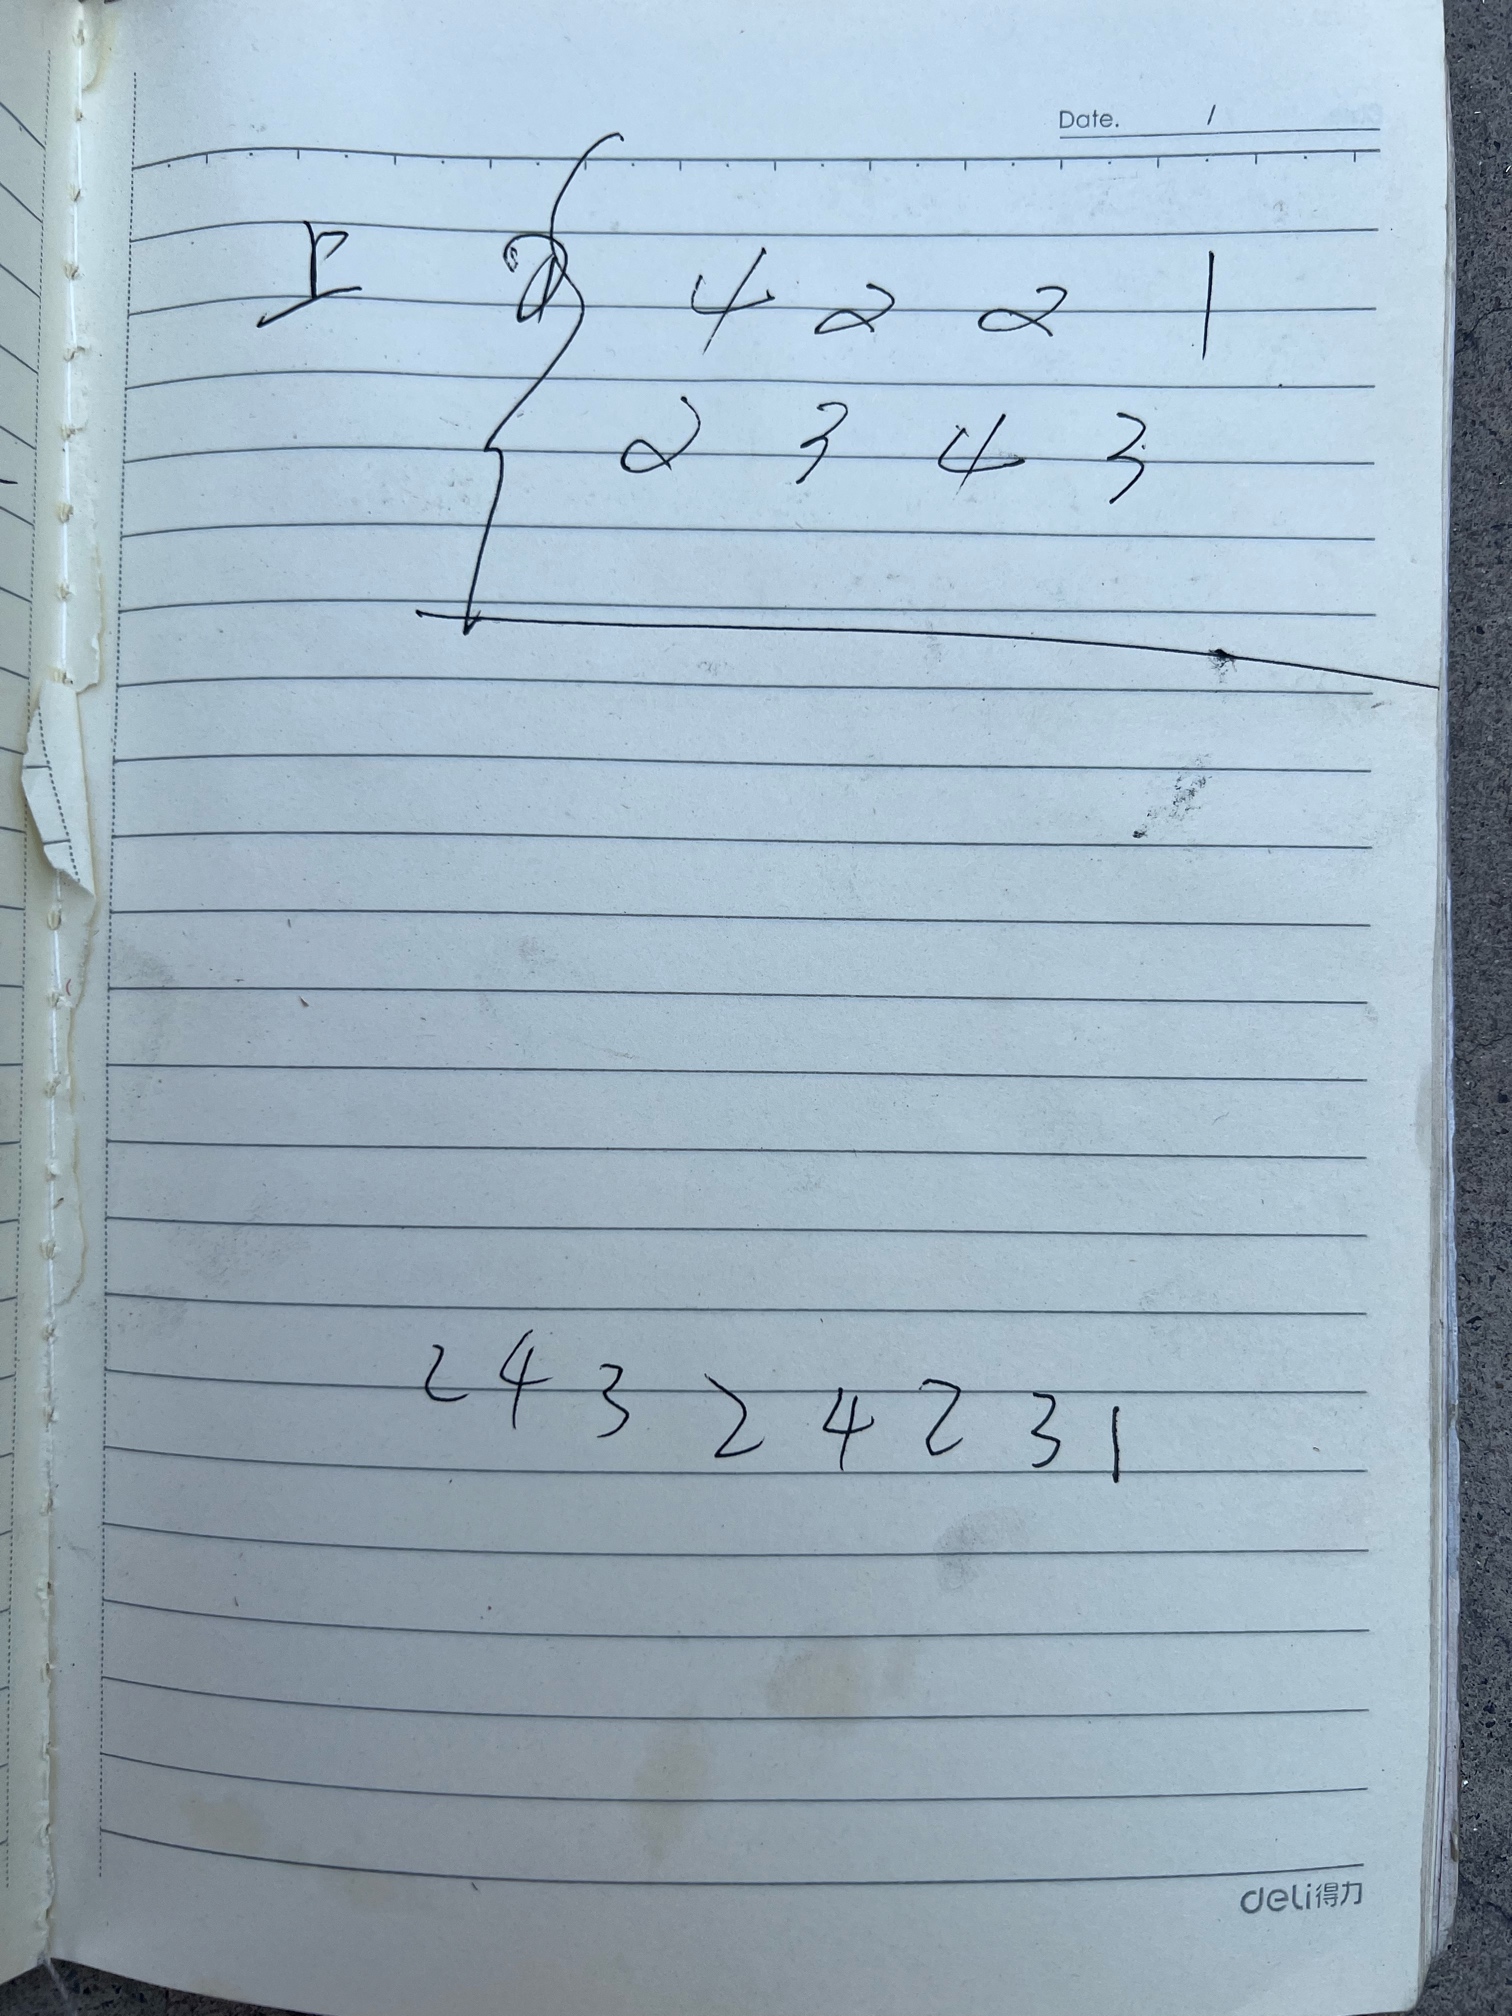 Date. /
4 2 2 1
2 3 4 3
2 4 3 2 4 2 3 1
deli得力